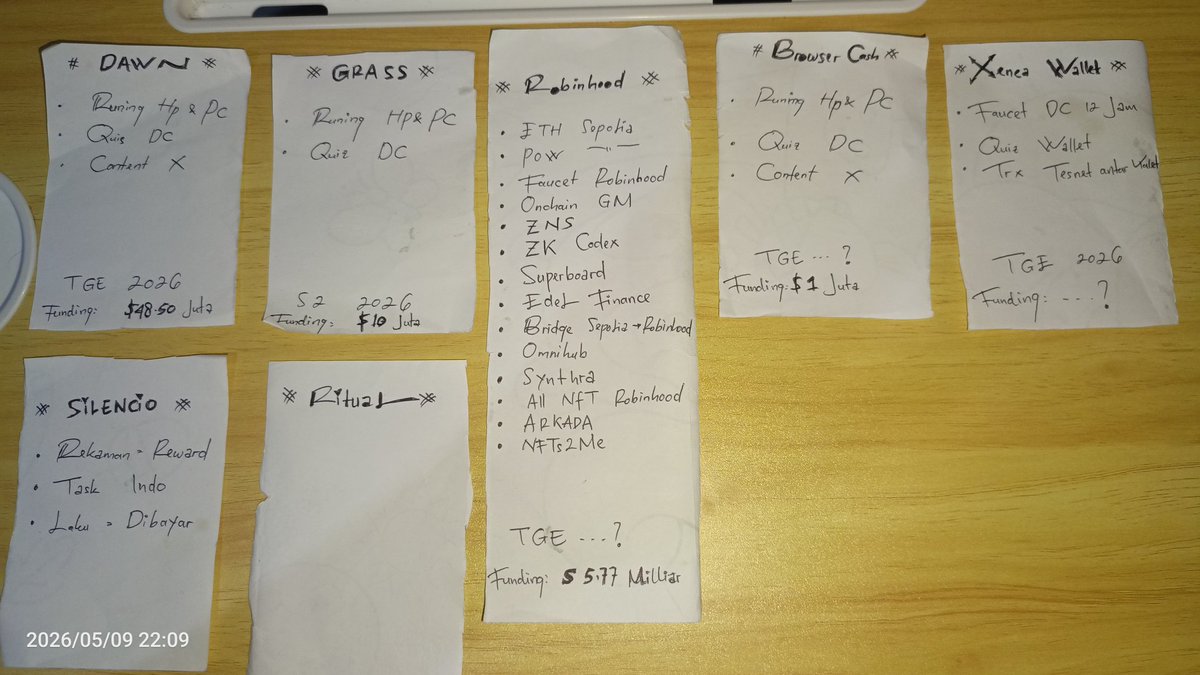 # DAWN *
• Runing Hp & PC
• Quis DC
• Content X
TGE 2026
Funding: $48.50 Juta
* GRASS *
• Runing Hp & PC
• Quiz DC
S2 2026
Funding: $10 Juta
* Robinhood *
• ETH Sepolia
• POW —〃—
• Faucet Robinhood
• Onchain GM
• ZNS
• ZK Codex
• Superboard
• Edel Finance
• Bridge Sepolia → Robinhood
• Omnihub
• Synthra
• All NFT Robinhood
• ARKADA
• NFTs2Me
TGE ...?
Funding: $ 5.77 Milliar
# Browser Cash *
• Runing Hp & PC
• Quiz DC
• Content X
TGE ... ?
Funding: $1 Juta
* Xenea Wallet *
• Faucet DC 12 Jam
• Quiz Wallet
• Trx Tesnet antar Wallet
TGE 2026
Funding: ....?
* SiLENCiO *
• Rekaman = Reward
• Task Indo
• Laku = Dibayar
* Ritual *
2026/05/09 22:09